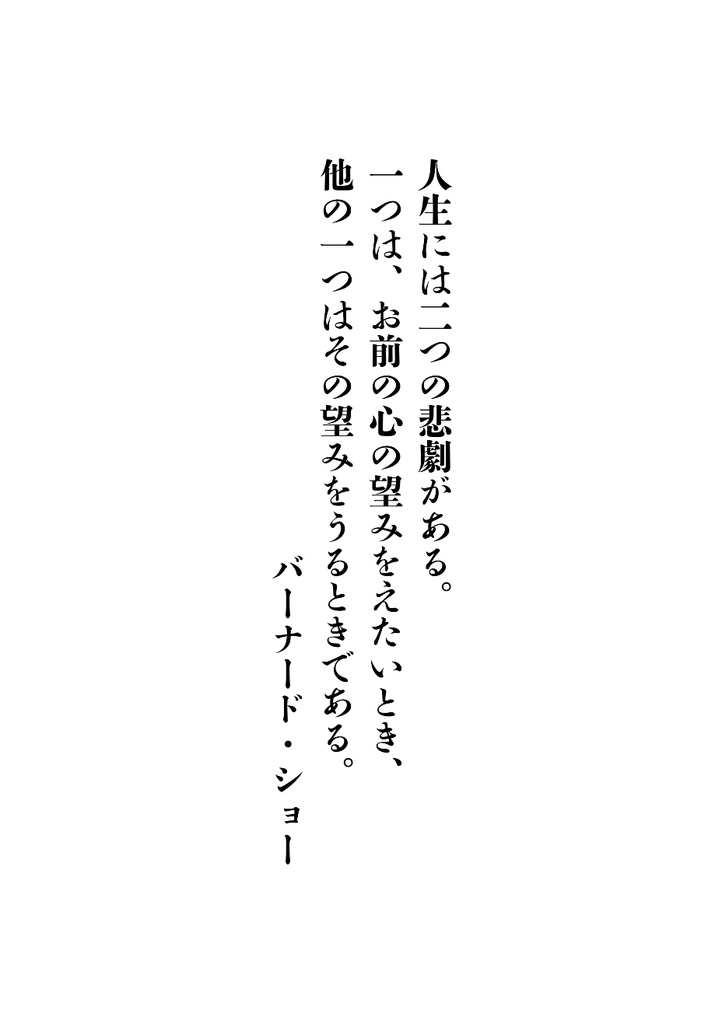 人生には二つの悲劇がある。
一つは、お前の心の望みをえたいとき、
他の一つはその望みをうるときである。
バーナード・ショー